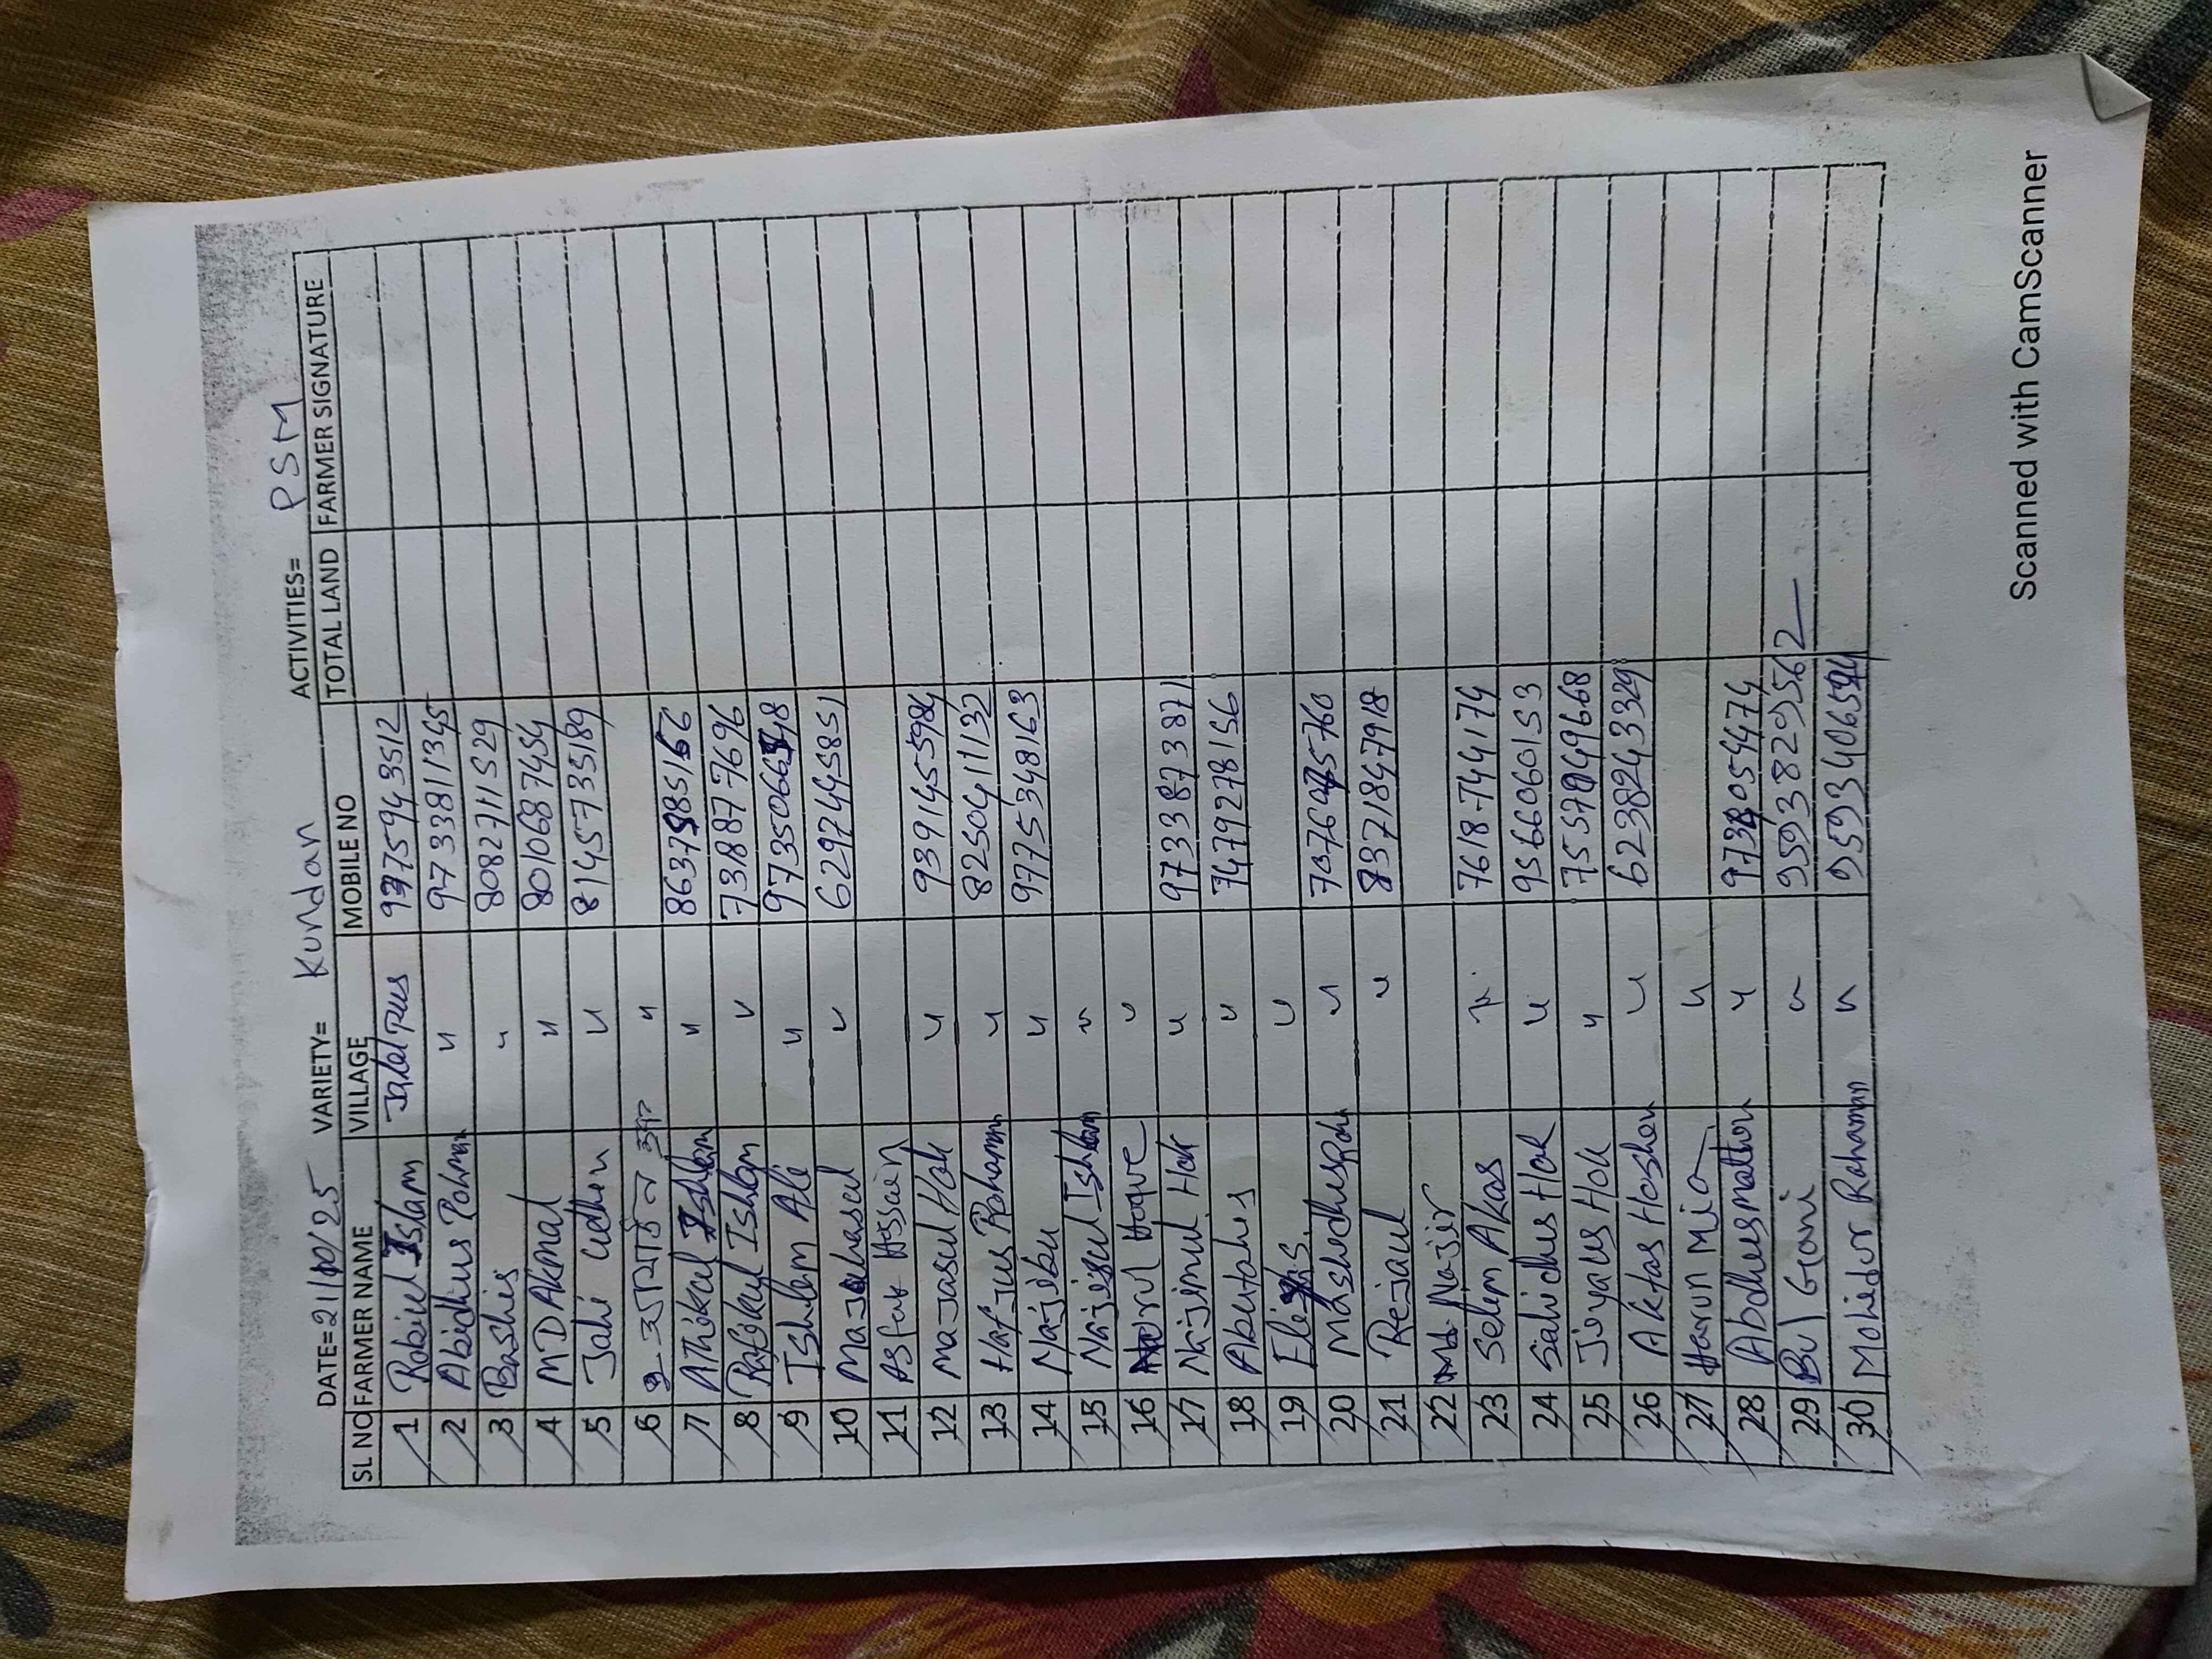 DATE=21/10/25 VARIETY= Kundan ACTIVITIES= PSM
SL NO FARMER NAME VILLAGE MOBILE NO TOTAL LAND FARMER SIGNATURE
1 Robiul Islam Jalalpur 9775943512
2 Abidhur Rahman " 9733811345
3 Bashir " 8082711529
4 MD Akmal " 8010687454
5 Jahi Uddhin " 8145735189
6 "
7 Athikul Ishlam " 8637585166
8 Rafikul Ishlam " 7318877696
9 Ishlam Ali " 9735066548
10 " 6297445851
11 Asfak Hossain
12 Majasul Hok " 9391455984
13 Hafijur Rahaman " 8250411132
14 Najibu " 9775348163
15 Najisul Ishlam "
16 Nurul Hoque "
17 Najimul Hok " 9733873871
18 Abutaher " 7479278156
19 "
20 Mashedhur Rah "
21 Rejaul " 8371847918
22 Md Najir
23 Selim Akas " 7618744174
24 Sahidhur Hok " 9566060153
25 Joyarus Hok "
26 Aktar Hoshen " 6238243329
27 Harun Mia "
28 "
29 Bul Gani " 9593829562
30 Mohidur Rahaman "
Scanned with CamScanner